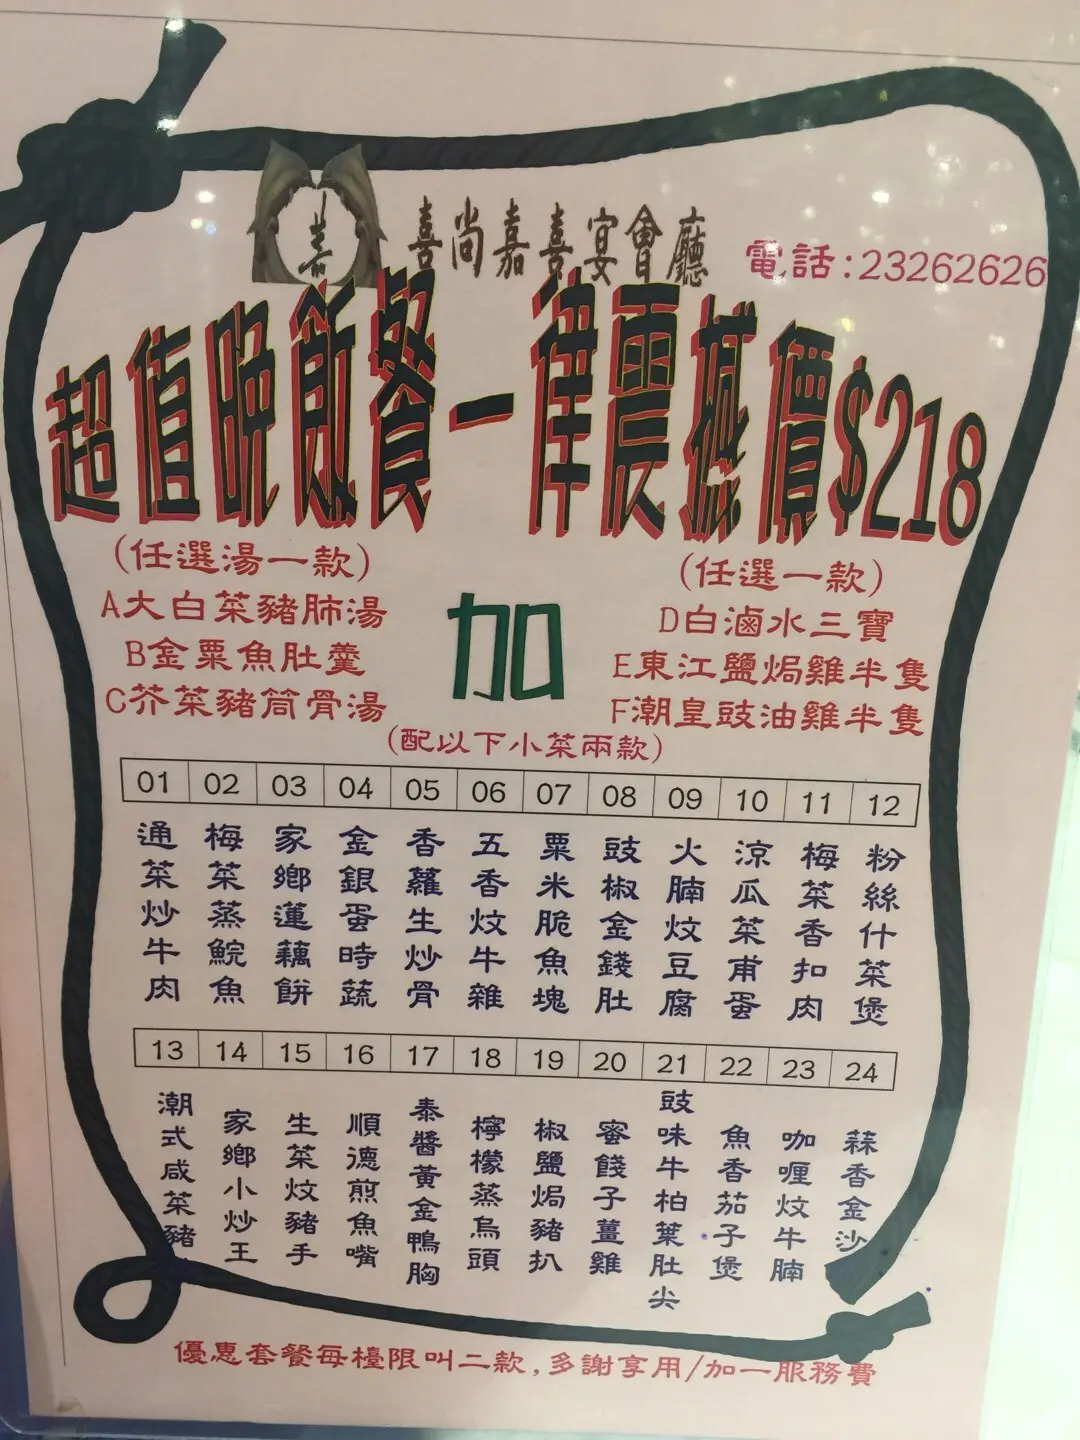 囍
喜尚嘉喜宴會廳
電話:23262626
超值晚飯餐一律震撼價$218
(任選湯一款)
A大白菜豬肺湯
B金粟魚肚羹
C芥菜豬筒骨湯
加
(任選一款)
D白滷水三寶
E東江鹽焗雞半隻
F潮皇豉油雞半隻
(配以下小菜兩款)
01 02 03 04 05 06 07 08 09 10 11 12
通菜炒牛肉
梅菜蒸鯇魚
家鄉蓮藕餅
金銀蛋時蔬
香蘿生炒骨
五香炆牛雜
粟米脆魚塊
豉椒金錢肚
火腩炆豆腐
涼瓜菜甫蛋
梅菜香扣肉
粉絲什菜煲
13 14 15 16 17 18 19 20 21 22 23 24
潮式咸菜豬
家鄉小炒王
生菜炆豬手
順德煎魚嘴
泰醬黃金鴨胸
檸檬蒸烏頭
椒鹽焗豬扒
蜜餞子薑雞
豉味牛柏葉肚尖
魚香茄子煲
咖喱炆牛腩
蒜香金沙
優惠套餐每檯限叫二款,多謝享用/加一服務費